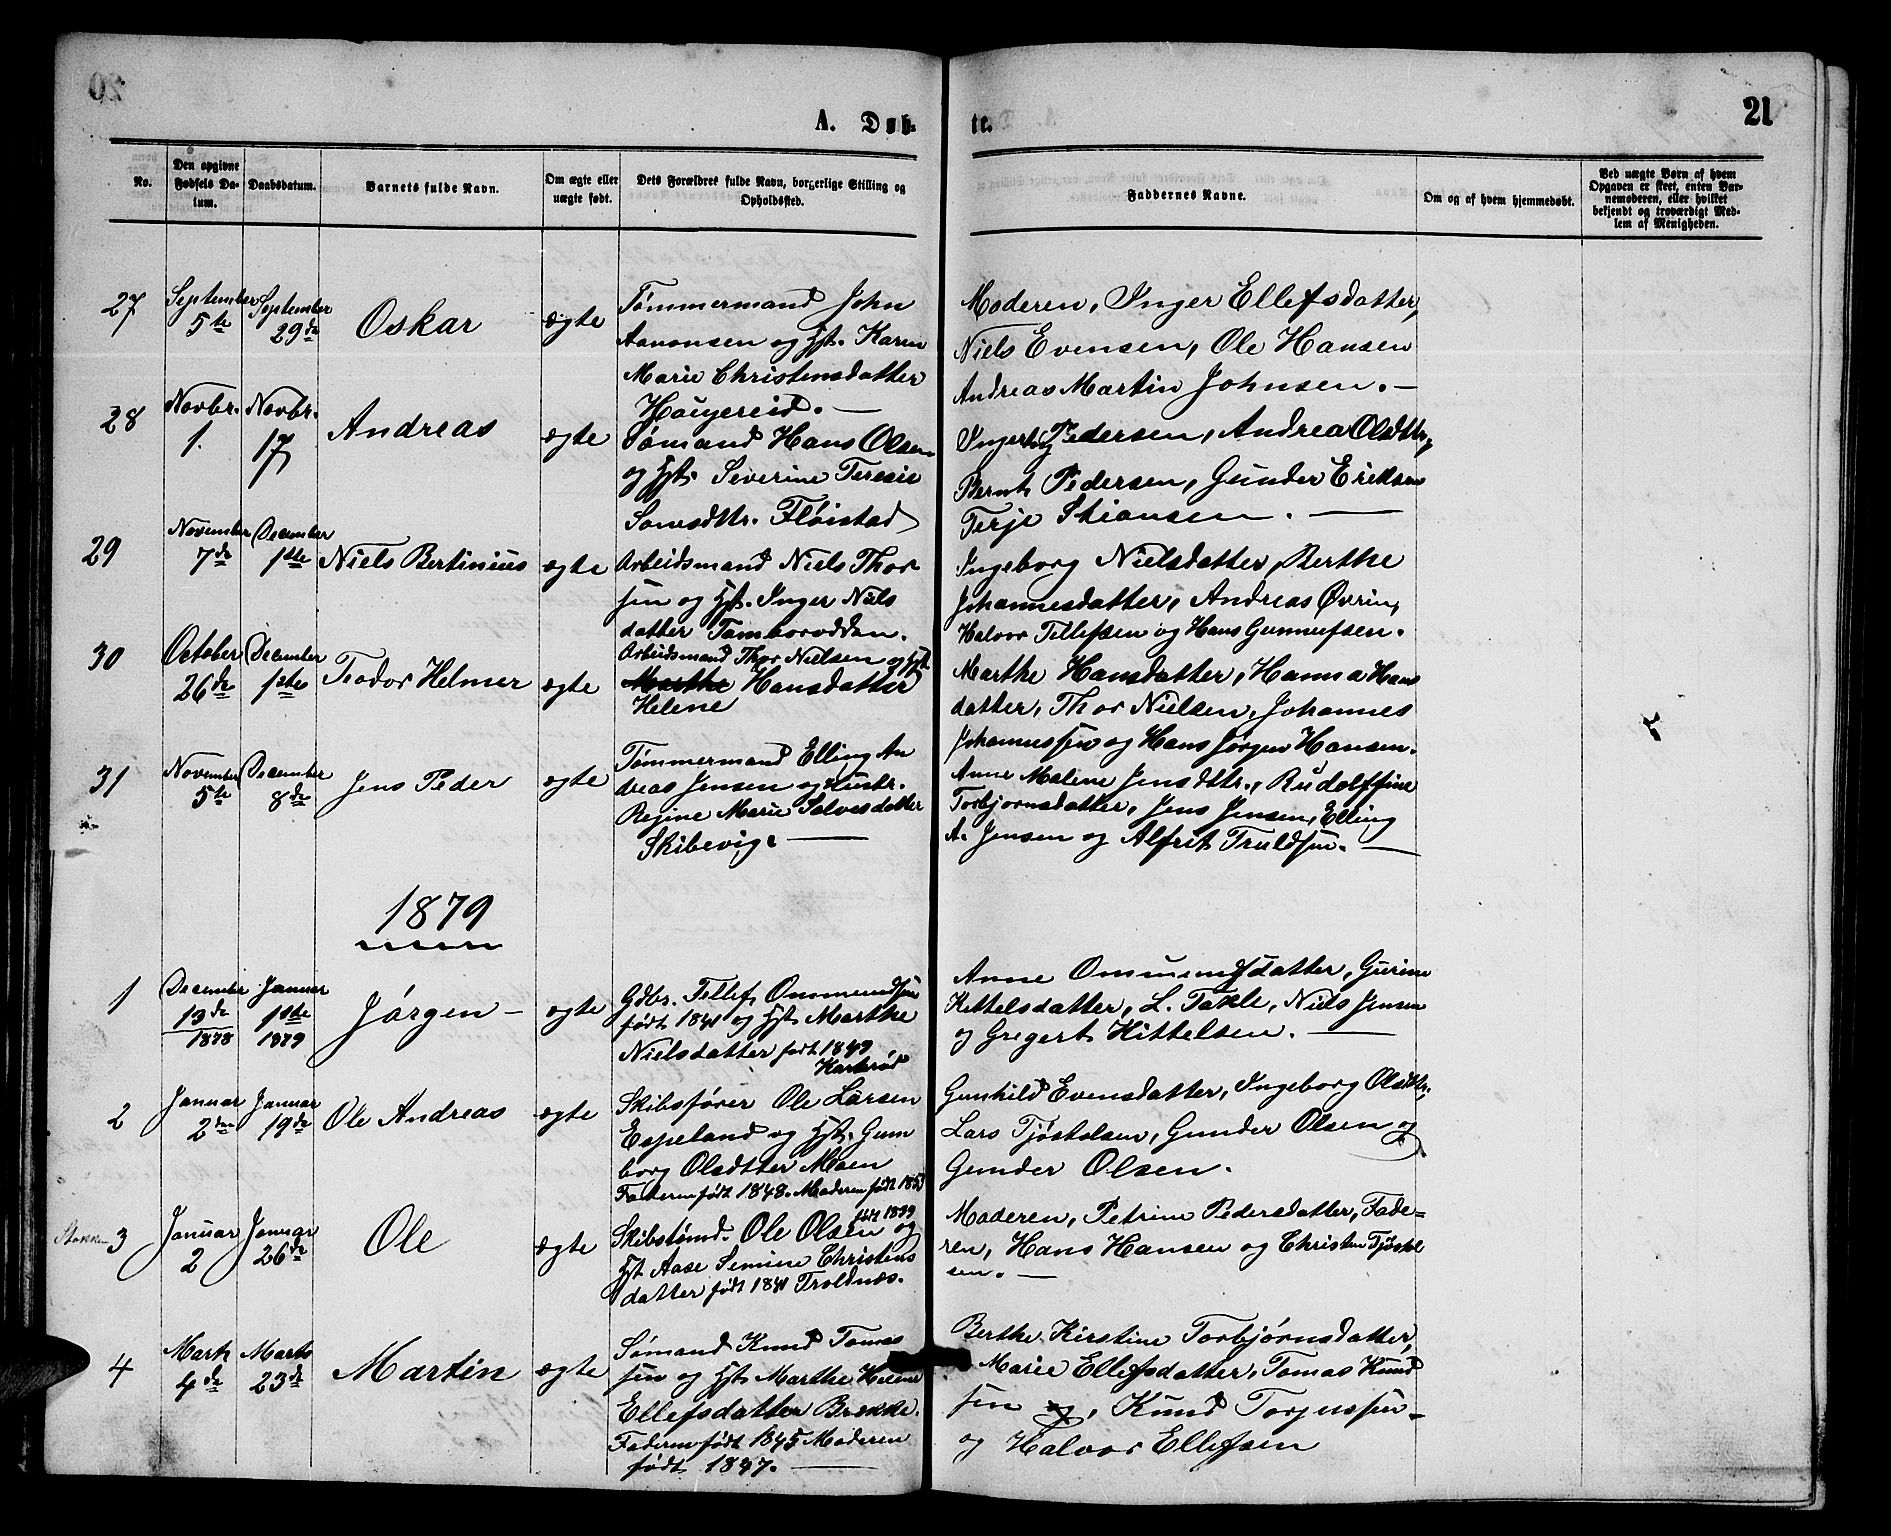 21
A. Døb-
te.
No.
Den opgivne Fødsels Da-tum.
Daabsdatum.
Barnets fulde Navn.
Om ægte eller uægte født.
Dets Forældres fulde Navn, borgerlige Stilling og Opholdsted.
Faddernes Navne.
Om og af hvem hjemmedøbt.
Ved uægte Børn af hvem Opgaven er skeet, enten Bar-nemoderen, eller hvilket bekjendt og troværdigt Med-lem af Menigheden.
27 September 5te September 29de Oskar ægte
Tømmermand John
Aanonsen og Hst. Karen
Marie Christensdatter
Haugereid. —
Moderen, Inger Ellefsdatter,
Niels Evensen, Ole Hansen
Andreas Martin Johnsen. —
28 Novbr. 1. Novbr. 17 Andreas ægte
Sømand Hans Olsen
og Hst. Severine Teresie
Fløistad
Pedersen, Andrea Olsdttr,
Bernt Pedersen, Gunder Eriksen
Terje Stiansen. —
29 November 7de December 1ste Niels Bertinius ægte
Arbeidsmand Niels Thor
sen og Hst. Inger Niels
datter Tamborodden.
Ingeborg Nielsdatter, Berthe
Johannesdatter, Andreas Øvrin,
Halvor Tellefsen og Hans Gunnufsen.
30 October 26de December 1ste Teodor Helmer ægte
Arbeidsmand Thor Nielsen og Hst.
Marthe Hansdatter
Helene
Marthe Hansdatter, Hanna Hans
datter, Thor Nielsen, Johannes
Johannessen og Hans Jørgen Hansen.
31 November 5te December 8de Jens Peder ægte
Tømmermand Elling An
dreas Jensen og Hustr.
Regine Marie Salvesdatter
Skibevig. —
Anne Malene Jensdttr., Rudolffine
Torbjornsdatter, Jens Jensen, Elling
A. Jensen og Alfrit Truldsen. —
1879
1 December 13de 1878 Januar 1ste 1879 Jørgen — ægte
Gdbr. Tellef Ommundsen
født 1841 og Hst. Marthe
Nielsdatter født 1849
Anne Ommundsdatter, Gurine
Kettelsdatter, L. Takle, Niels Jensen
og Gregert Kittelsen. —
2 Januar 2den Januar 19de Ole Andreas ægte
Skibsfører Ole Larsen
Espeland og Hst. Gun
borg Olsdtter Moen
Faderen født 1848. Moderen født
Gunhild Evensdatter, Ingeborg Olsdttr,
Lars Tjøstolsen, Gunder Olsen og
Gunder Olsen.
Stokken 3 Januar 2 Januar 26de Ole ægte
Skibstømd. Ole Olsen født 1839 og
Hst Aase Semine Christens
datter født 1841 Troldnæs.
Moderen, Petrine Pedersdatter, Fade=
ren, Hans Hansen og Christen Tjøstol
sen. —
4 Marts 4de Marts 23de Martin ægte
Sømand Knud Tomas
sen og Hst. Marthe Helene
Ellefsdatter Brække.
Faderen født 1845 Moderen
født 1847. —
Berthe Kirstine Torbjørnsdatter,
Marie Ellefsdatter, Tomas Knud
sen og, Knud Torjussen
og Halvor Ellefsen